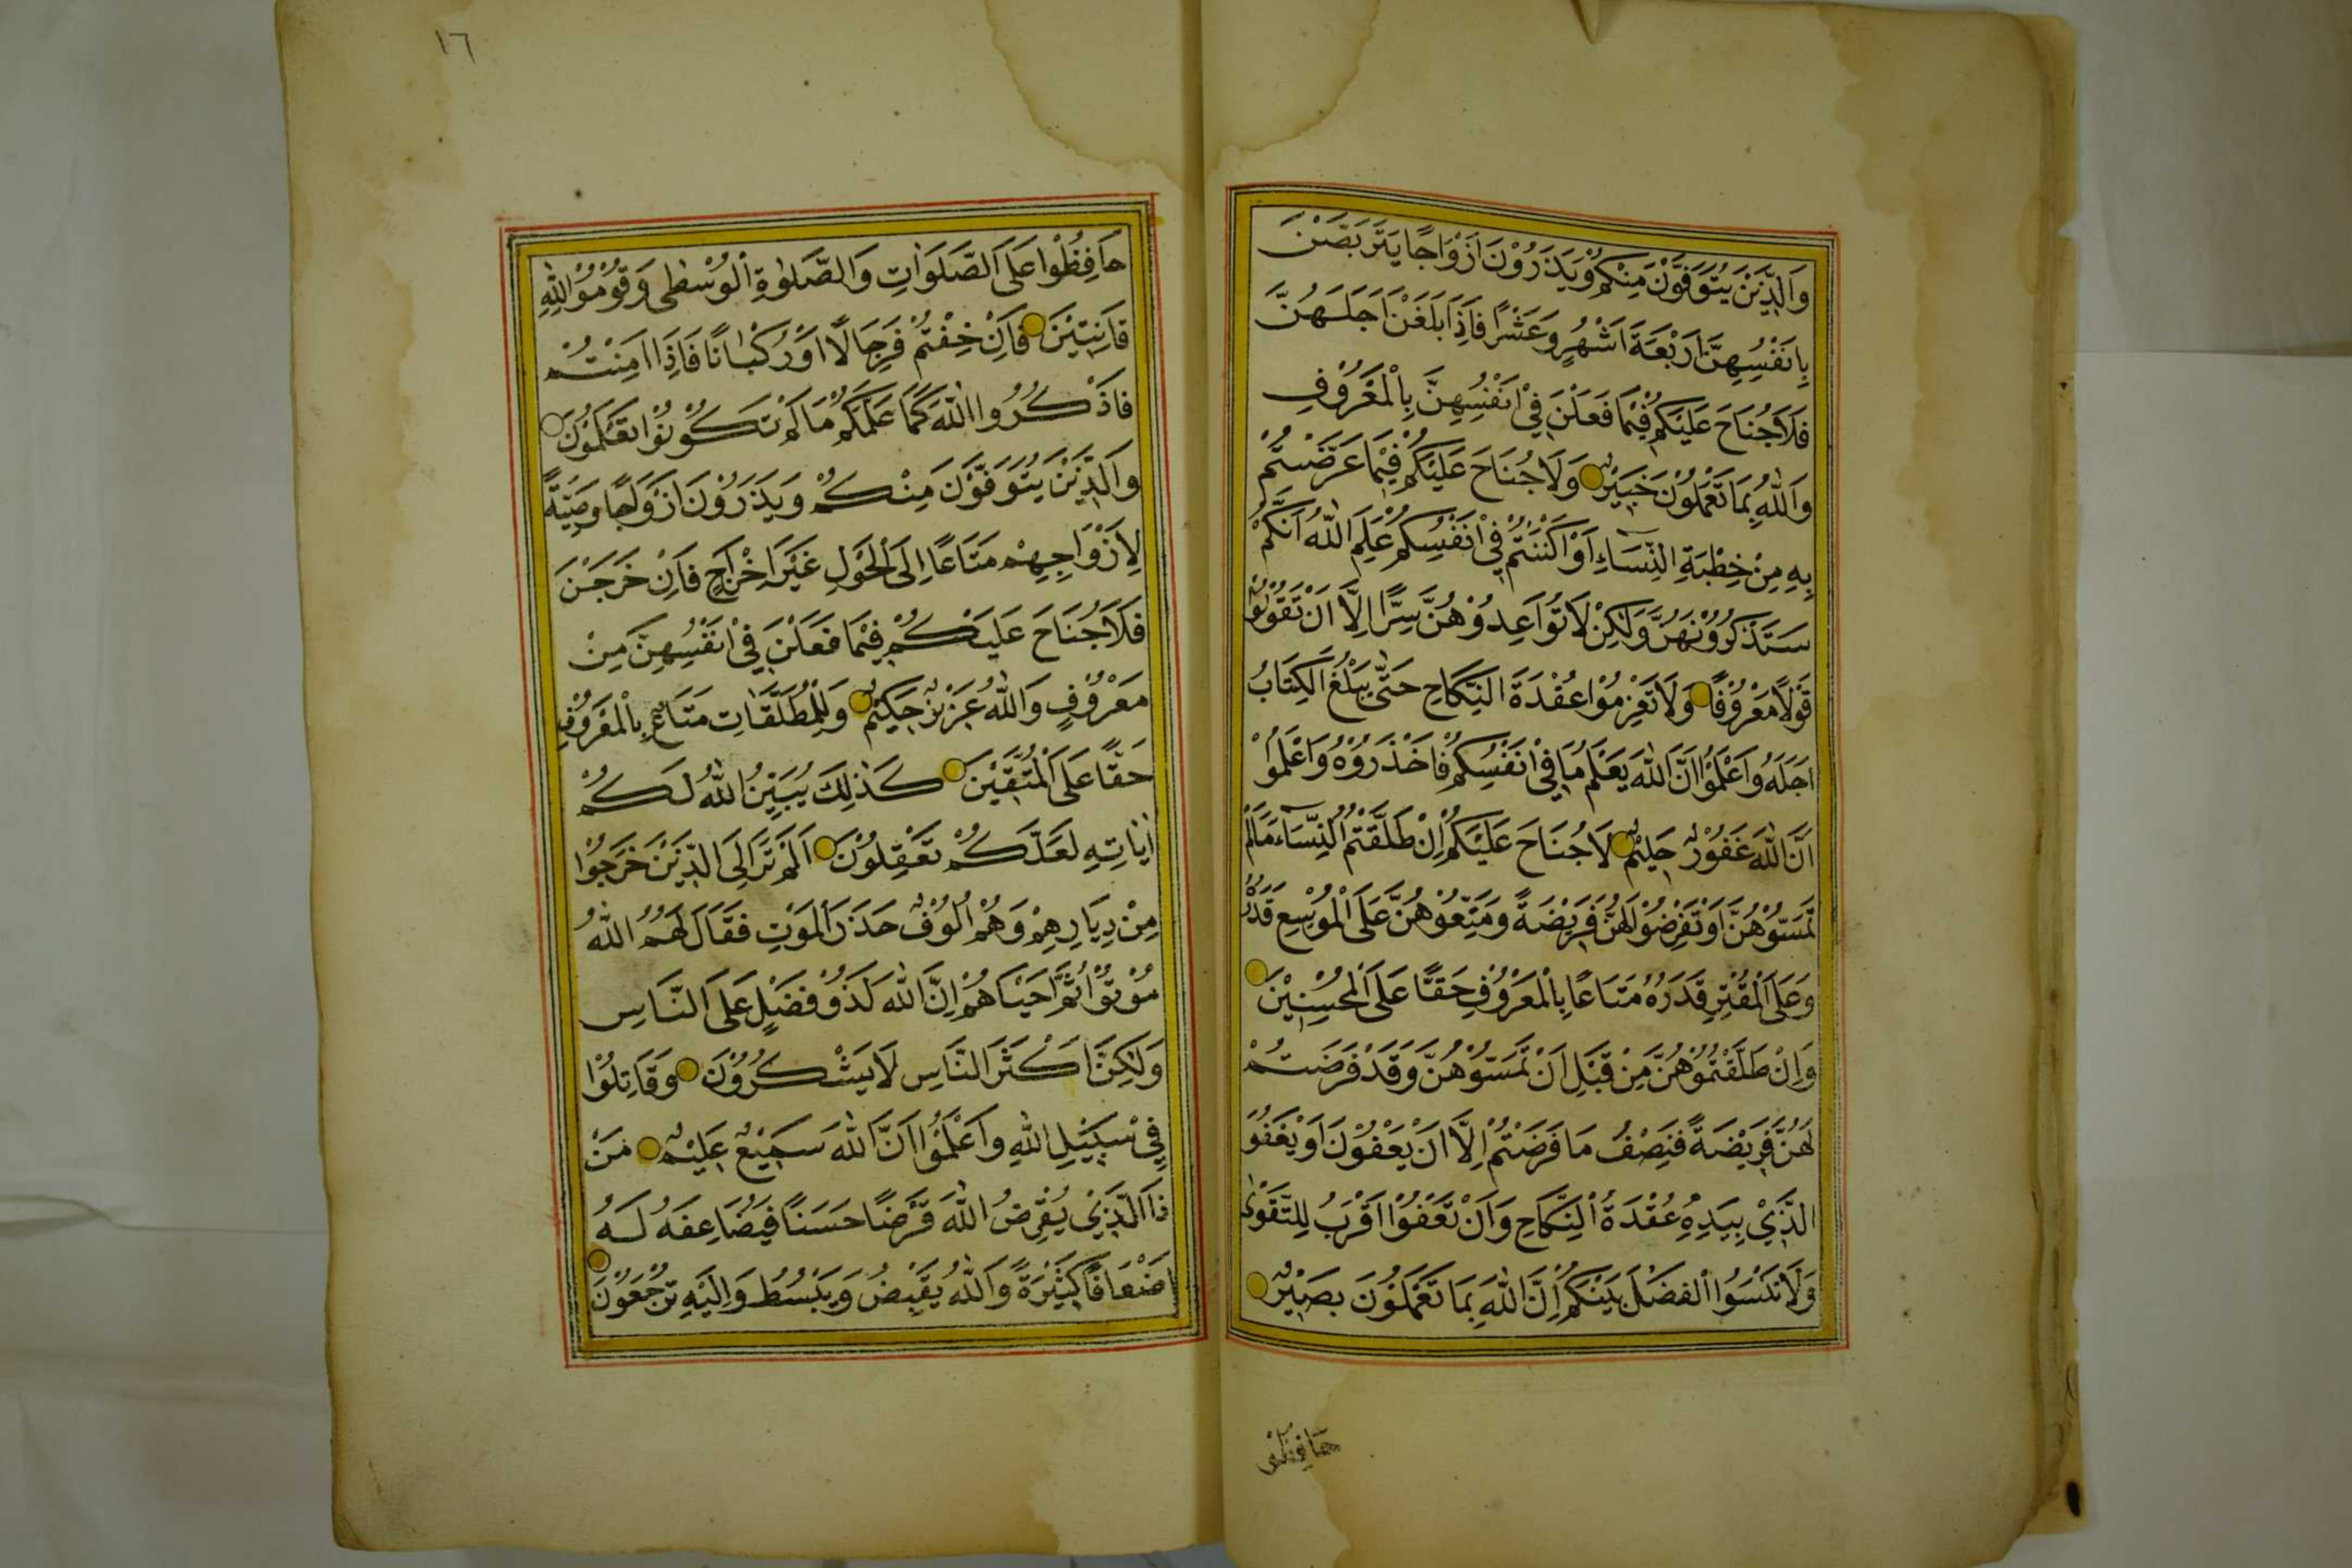 وَالَّذِينَ يُتَوَفَّوْنَ مِنْكُمْ وَيَذَرُوْنَ اَزْوَاجًا يَتَرَبَّصْنَ
بِاَنْفُسِهِنَّ اَرْبَعَةَ اَشْهُرٍ وَعَشْرًا فَاِذَا بَلَغْنَ اَجَلَهُنَّ
فَلَا جُنَاحَ عَلَيْكُمْ فِيْمَا فَعَلْنَ فِيْ اَنْفُسِهِنَّ بِالْمَعْرُوْفِ
وَاللهُ بِمَا تَعْمَلُوْنَ خَبِيْرٌ وَلَا جُنَاحَ عَلَيْكُمْ فِيْمَا عَرَّضْتُمْ
بِهِ مِنْ خِطْبَةِ النِّسَاءِ اَوْ اَكْنَنْتُمْ فِيْ اَنْفُسِكُمْ عَلِمَ اللهُ اَنَّكُمْ
سَتَذْكُرُوْنَهُنَّ وَلٰكِنْ لَا تُوَاعِدُوْهُنَّ سِرًّا اِلَّا اَنْ تَقُوْلُوْا
قَوْلًا مَعْرُوْفًا وَلَا تَعْزِمُوْا عُقْدَةَ النِّكَاحِ حَتّٰى يَبْلُغَ الْكِتَابُ
اَجَلَهُ وَاعْلَمُوْا اَنَّ اللهَ يَعْلَمُ مَا فِيْ اَنْفُسِكُمْ فَاحْذَرُوْهُ وَاعْلَمُوْا
اَنَّ اللهَ غَفُوْرٌ حَلِيْمٌ لَا جُنَاحَ عَلَيْكُمْ اِنْ طَلَّقْتُمُ النِّسَاءَ مَالَمْ
تَمَسُّوْهُنَّ اَوْ تَفْرِضُوْا لَهُنَّ فَرِيْضَةً وَمَتِّعُوْهُنَّ عَلَى الْمُوْسِعِ قَدَرُهُ
وَعَلَى الْمُقْتِرِ قَدَرُهُ مَتَاعًا بِالْمَعْرُوْفِ حَقًّا عَلَى الْمُحْسِنِيْنَ
وَاِنْ طَلَّقْتُمُوْهُنَّ مِنْ قَبْلِ اَنْ تَمَسُّوْهُنَّ وَقَدْ فَرَضْتُمْ
لَهُنَّ فَرِيْضَةً فَنِصْفُ مَا فَرَضْتُمْ اِلَّا اَنْ يَعْفُوْنَ اَوْ يَعْفُوَ
الَّذِيْ بِيَدِهِ عُقْدَةُ النِّكَاحِ وَاَنْ تَعْفُوْا اَقْرَبُ لِلتَّقْوٰى
وَلَا تَنْسَوُا الْفَضْلَ بَيْنَكُمْ اِنَّ اللهَ بِمَا تَعْمَلُوْنَ بَصِيْرٌ
حافظوا
١٦
حَافِظُوْا عَلَى الصَّلَوَاتِ وَالصَّلٰوةِ الْوُسْطٰى وَقُوْمُوْا لِلّٰهِ
قَانِتِيْنَ فَاِنْ خِفْتُمْ فَرِجَالًا اَوْ رُكْبَانًا فَاِذَا اَمِنْتُمْ
فَاذْكُرُوا اللهَ كَمَا عَلَّمَكُمْ مَا لَمْ تَكُوْنُوْا تَعْلَمُوْنَ
وَالَّذِيْنَ يُتَوَفَّوْنَ مِنْكُمْ وَيَذَرُوْنَ اَزْوَاجًا وَصِيَّةً
لِاَزْوَاجِهِمْ مَتَاعًا اِلَى الْحَوْلِ غَيْرَ اِخْرَاجٍ فَاِنْ خَرَجْنَ
فَلَا جُنَاحَ عَلَيْكُمْ فِيْمَا فَعَلْنَ فِيْ اَنْفُسِهِنَّ مِنْ
مَعْرُوْفٍ وَاللهُ عَزِيْزٌ حَكِيْمٌ وَلِلْمُطَلَّقَاتِ مَتَاعٌ بِالْمَعْرُوْفِ
حَقًّا عَلَى الْمُتَّقِيْنَ كَذٰلِكَ يُبَيِّنُ اللهُ لَكُمْ
اٰيَاتِهِ لَعَلَّكُمْ تَعْقِلُوْنَ اَلَمْ تَرَ اِلَى الَّذِيْنَ خَرَجُوْا
مِنْ دِيَارِهِمْ وَهُمْ اُلُوْفٌ حَذَرَ الْمَوْتِ فَقَالَ لَهُمُ اللهُ
مُوْتُوْا ثُمَّ اَحْيَاهُمْ اِنَّ اللهَ لَذُوْ فَضْلٍ عَلَى النَّاسِ
وَلٰكِنَّ اَكْثَرَ النَّاسِ لَا يَشْكُرُوْنَ وَقَاتِلُوْا
فِيْ سَبِيْلِ اللهِ وَاعْلَمُوْا اَنَّ اللهَ سَمِيْعٌ عَلِيْمٌ مَنْ
ذَا الَّذِيْ يُقْرِضُ اللهَ قَرْضًا حَسَنًا فَيُضَاعِفَهُ لَهُ
اَضْعَافًا كَثِيْرَةً وَاللهُ يَقْبِضُ وَيَبْسُطُ وَاِلَيْهِ تُرْجَعُوْنَ